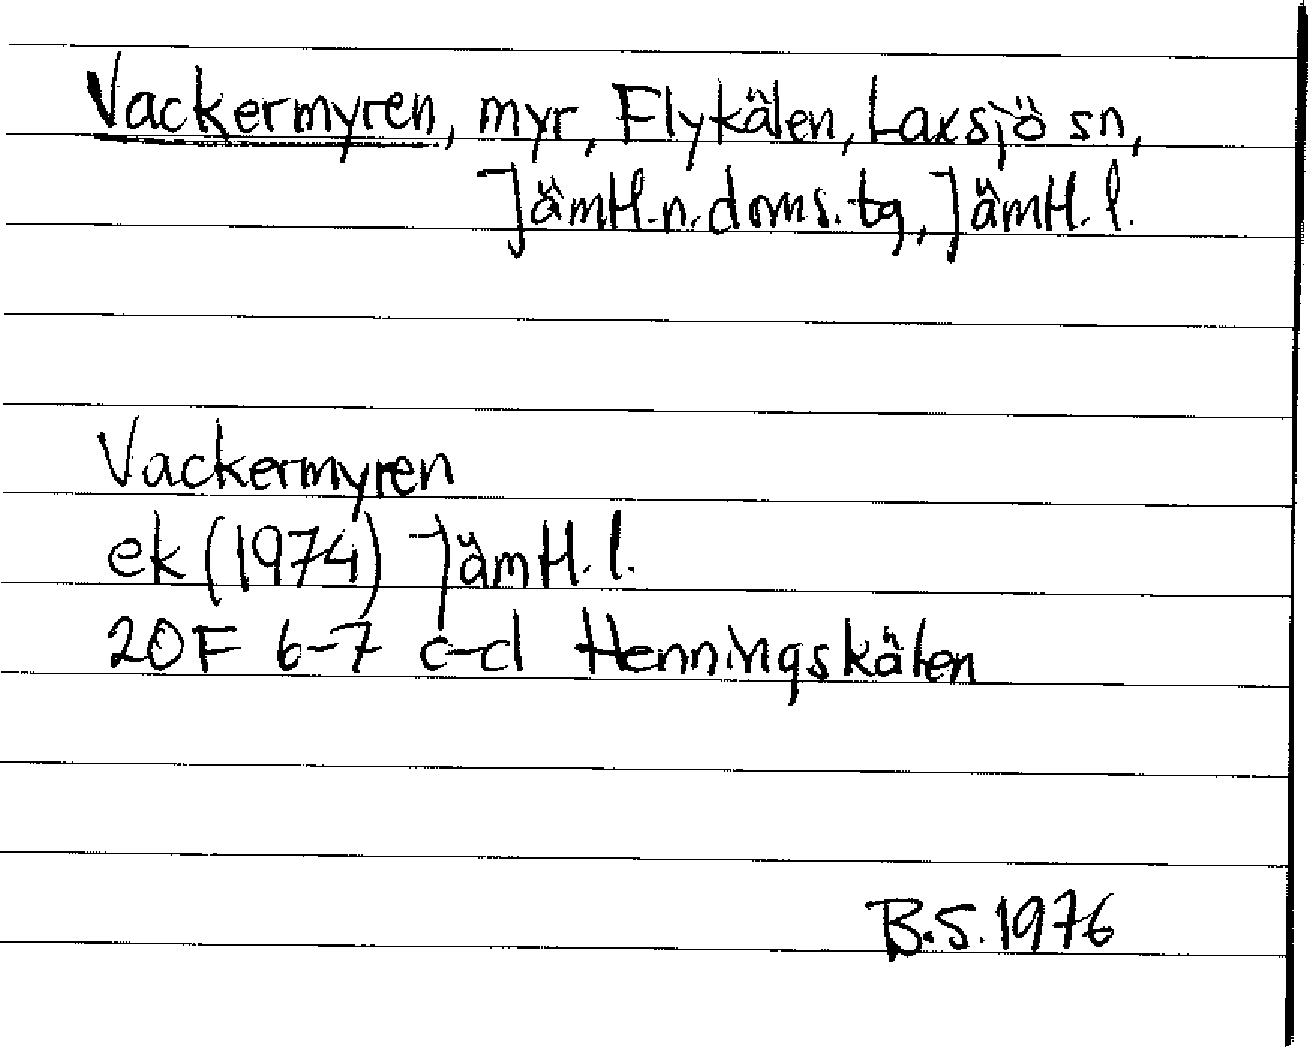 Vackermyren, myr, Flykälen, Laxsjö sn,
Jämtl.n.doms.tg, Jämtl.l.
Vackermyren
ek (1974) Jämtl.l.
20F 6-7 c-d Henningskälen
B.S.1976